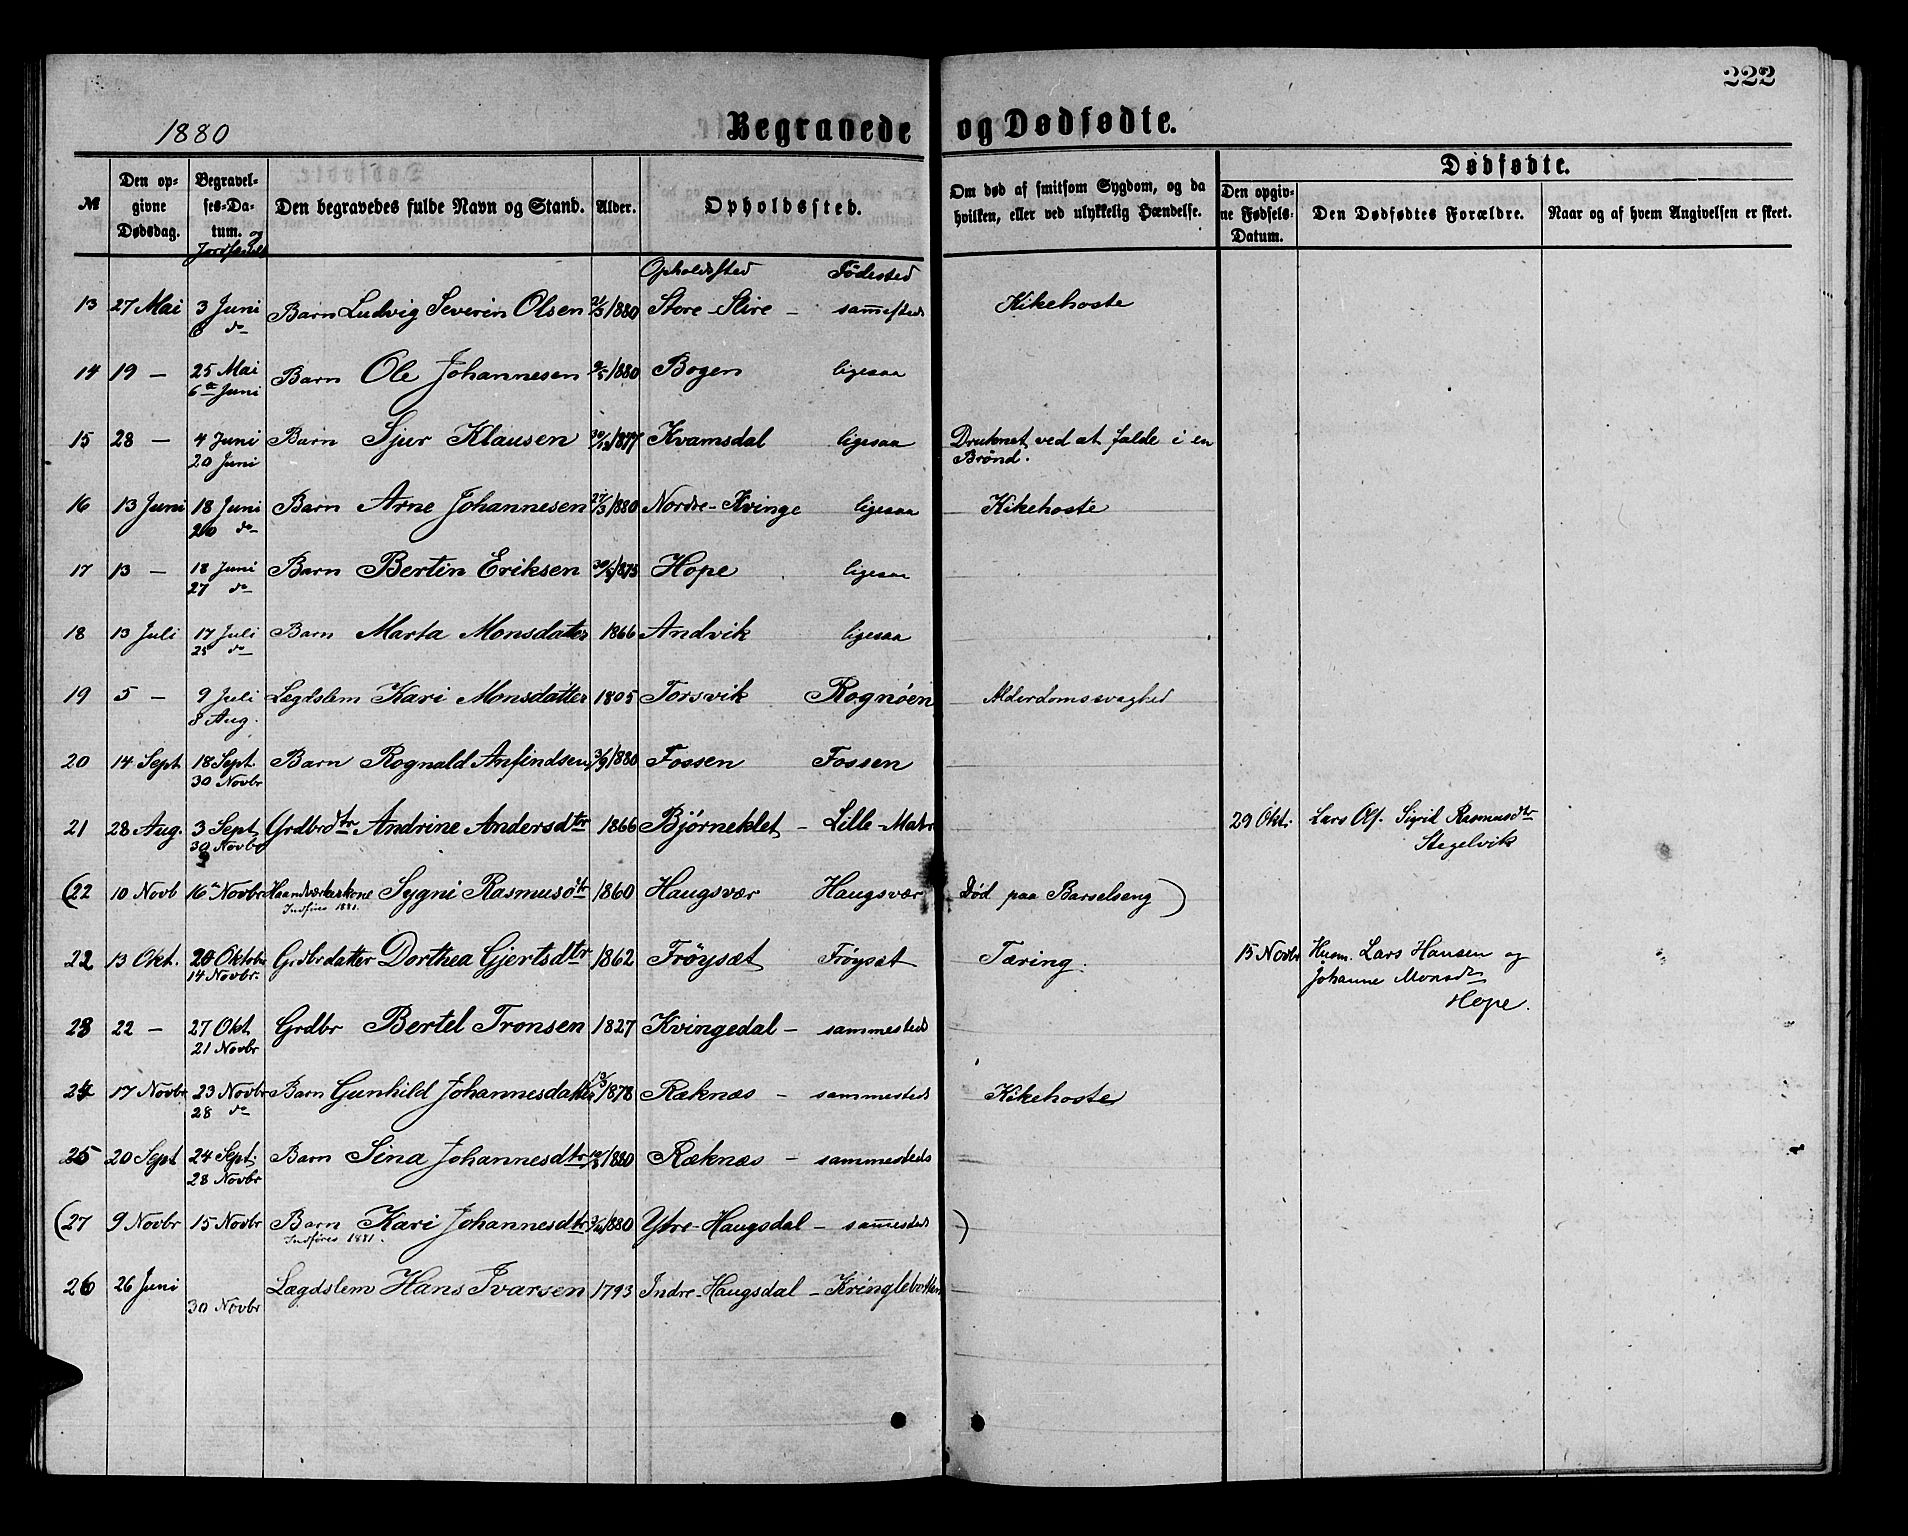 222
1880 Begravede og Dødfødte.
№ Den opgivne Dødsdag. Begravelses-Datum. og Jordfæstels Den begravedes fulde Navn og Stand. Alder. Opholdssted. Om død af smitsom Sygdom, og da hvilken, eller ved ulykkelig Hændelse. Dødfødte. Den opgivne Fødsels-Datum. Den Dødfødtes Forældre. Naar og af hvem Angivelsen er skeet.
Opholdssted Fødested
13 27 Mai 3 Juni Barn Ludvig Severin Olsen 21/3 1880 Store-Slire – sammesteds Kikehoste
6 do
14 19 – 25 Mai Barn Ole Johannesen 9/5 1880 Bogen ligesaa
6te Juni
15 28 – 4 Juni Barn Sjur Klausen 30/12 1877 Kvamsdal ligesaa Druknet ved at falde i en
20 Juni Brønd.
16 13 Juni 18 Juni Barn Arne Johannesen 27/3 1880 Nordre-Kvinge ligesaa Kikehoste
20 do
17 13 – 18 Juni Barn Bertin Eriksen 1875 Hope ligesaa
27 do
18 13 Juli 17 Juli Barn Marta Monsdatter 1866 Andvik ligesaa
25 do
19 5 – 9 Juli Lægdslem Kari Monsdatter 1805 Torsvik Rognøen Alderdomssvaghed
8 Aug.
20 14 Sept 18 Sept. Barn Rognald Anfindsen 3/9 1880 Fossen Fossen
30 Novbr
21 28 Aug. 3 Sept Grdbrdtr Andrine Andersdtr 1866 Bjørneklet – Lille-Matr 29 Okt. Lars Olf. Sigrid Rasmusdtr
30 Novbr Stegelvik
(22 10 Novb 16 Novbr Haandværkerkone Sygni Rasmusdtr 1860 Haugsvær Haugsvær Død paa Barselseng )
Indføres 1881.
22 13 Okt. 20 Oktober Grdbrdatter Dorthea Gjertsdtr 1862 Frøyset Frøyset Tæring. 15 Novbr Husm. Lars Hansen og
14 Novbr. Johanne Monsdtr
Hope.
23 22 – 27 Okt Grdbr Bertel Tronsen 1827 Kvingedal – sammesteds
21 Novbr
24 17 Novbr 23 Novbr Barn Gunhild Johannesdatter 1878 Ræknæs – sammesteds Kikehoste
28 do
25 20 Sept 24 Sept. Barn Sina Johannesdtr 1880 Ræknæs – sammesteds
28 Novbr
(27 9 Novbr 15 Novbr Barn Kari Johannesdtr 1880 Ytre-Haugsdal – sammesteds )
Indføres 1881.
26 26 Juni Lægdslem Hans Ivarsen 1793 Indre-Haugsdal – Kringlebotten
30 Novbr